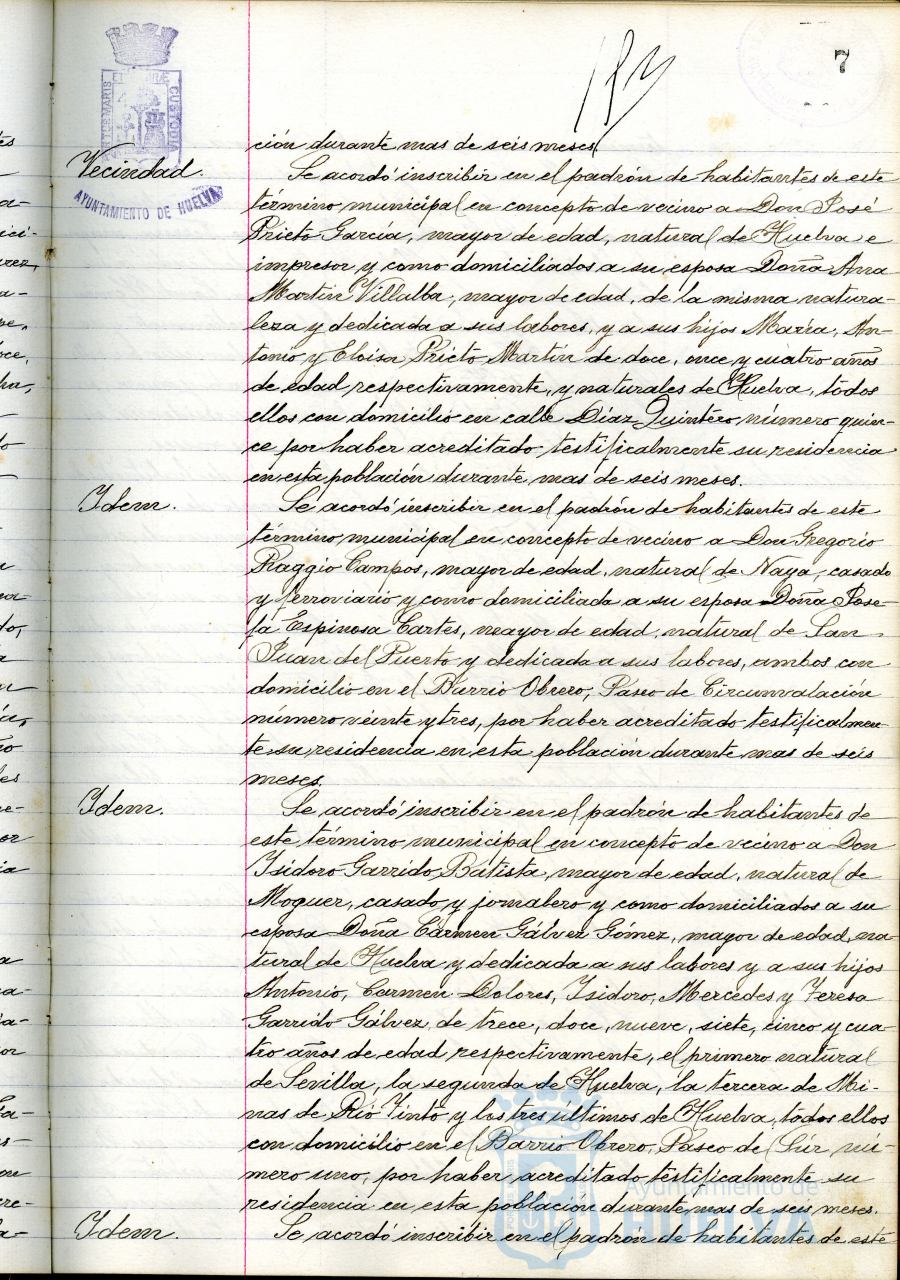 7
PORTUS MARIS ET TERRAE CUSTODIA
ción durante mas de seis meses.
Vecindad.
AYUNTAMIENTO DE HUELVA
Se acordó inscribir en el padrón de habitantes de este
término municipal en concepto de vecino a Don José
Prieto García, mayor de edad, natural de Huelva e
impresor y como domiciliados a su esposa Doña Ana
Martín Villalba, mayor de edad, de la misma natura-
leza y dedicada a sus labores, y a sus hijos María, An-
tonio y Eloisa Prieto Martín de doce, once y cuatro años
de edad respectivamente, y naturales de Huelva, todos
ellos con domicilio en calle Díaz Quintero número quin-
ce por haber acreditado testificalmente su residencia
en esta población durante mas de seis meses.
Idem.
Se acordó inscribir en el padrón de habitantes de este
término municipal en concepto de vecino a Don Gregorio
Raggio Campos, mayor de edad, natural de Naya, casado
y ferroviario y como domiciliada a su esposa Doña Jose-
fa Espinosa Cartes, mayor de edad, natural de San
Juan del Puerto y dedicada a sus labores, ambos con
domicilio en el Barrio Obrero, Paseo de Circunvalación
número veinte y tres, por haber acreditado testificalmen-
te su residencia en esta población durante mas de seis
meses.
Idem.
Se acordó inscribir en el padrón de habitantes de
este término municipal en concepto de vecino a Don
Isidoro Garrido Batista, mayor de edad, natural de
Moguer, casado y jornalero y como domiciliados a su
esposa Doña Carmen Gálvez Gómez, mayor de edad, na-
tural de Huelva y dedicada a sus labores y a sus hijos
Antonio, Carmen Dolores, Isidoro, Mercedes y Teresa
Garrido Gálvez de trece, doce, nueve, siete, cinco y cua-
tro años de edad respectivamente, el primero natural
de Sevilla, la segunda de Huelva, la tercera de Mi-
nas de Río Tinto y los tres últimos de Huelva, todos ellos
con domicilio en el Barrio Obrero, Paseo del Sur nú-
mero uno, por haber acreditado testificalmente su
residencia en esta población durante mas de seis meses.
Idem.
Se acordó inscribir en el padrón de habitantes de este
Ayuntamiento de
HUELVA